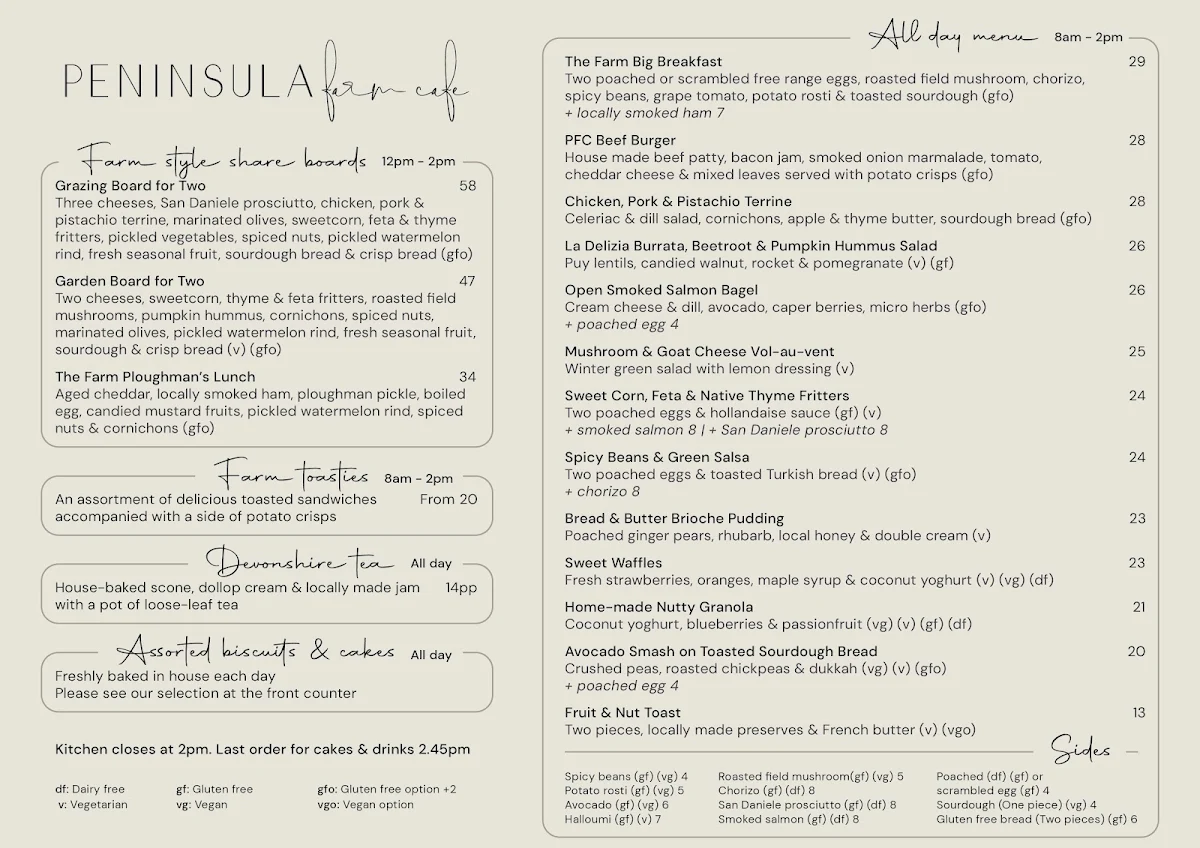 PENINSULA farm cafe
Farm style share boards 12pm - 2pm
Grazing Board for Two 58
Three cheeses, San Daniele prosciutto, chicken, pork &
pistachio terrine, marinated olives, sweetcorn, feta & thyme
fritters, pickled vegetables, spiced nuts, pickled watermelon
rind, fresh seasonal fruit, sourdough bread & crisp bread (gfo)
Garden Board for Two 47
Two cheeses, sweetcorn, thyme & feta fritters, roasted field
mushrooms, pumpkin hummus, cornichons, spiced nuts,
marinated olives, pickled watermelon rind, fresh seasonal fruit,
sourdough & crisp bread (v) (gfo)
The Farm Ploughman's Lunch 34
Aged cheddar, locally smoked ham, ploughman pickle, boiled
egg, candied mustard fruits, pickled watermelon rind, spiced
nuts & cornichons (gfo)
Farm toasties 8am - 2pm
An assortment of delicious toasted sandwiches From 20
accompanied with a side of potato crisps
Devonshire tea All day
House-baked scone, dollop cream & locally made jam 14pp
with a pot of loose-leaf tea
Assorted biscuits & cakes All day
Freshly baked in house each day
Please see our selection at the front counter
Kitchen closes at 2pm. Last order for cakes & drinks 2.45pm
df: Dairy free gf: Gluten free gfo: Gluten free option +2
v: Vegetarian vg: Vegan vgo: Vegan option
All day menu 8am - 2pm
The Farm Big Breakfast 29
Two poached or scrambled free range eggs, roasted field mushroom, chorizo,
spicy beans, grape tomato, potato rosti & toasted sourdough (gfo)
+ locally smoked ham 7
PFC Beef Burger 28
House made beef patty, bacon jam, smoked onion marmalade, tomato,
cheddar cheese & mixed leaves served with potato crisps (gfo)
Chicken, Pork & Pistachio Terrine 28
Celeriac & dill salad, cornichons, apple & thyme butter, sourdough bread (gfo)
La Delizia Burrata, Beetroot & Pumpkin Hummus Salad 26
Puy lentils, candied walnut, rocket & pomegranate (v) (gf)
Open Smoked Salmon Bagel 26
Cream cheese & dill, avocado, caper berries, micro herbs (gfo)
+ poached egg 4
Mushroom & Goat Cheese Vol-au-vent 25
Winter green salad with lemon dressing (v)
Sweet Corn, Feta & Native Thyme Fritters 24
Two poached eggs & hollandaise sauce (gf) (v)
+ smoked salmon 8 | + San Daniele prosciutto 8
Spicy Beans & Green Salsa 24
Two poached eggs & toasted Turkish bread (v) (gfo)
+ chorizo 8
Bread & Butter Brioche Pudding 23
Poached ginger pears, rhubarb, local honey & double cream (v)
Sweet Waffles 23
Fresh strawberries, oranges, maple syrup & coconut yoghurt (v) (vg) (df)
Home-made Nutty Granola 21
Coconut yoghurt, blueberries & passionfruit (vg) (v) (gf) (df)
Avocado Smash on Toasted Sourdough Bread 20
Crushed peas, roasted chickpeas & dukkah (vg) (v) (gfo)
+ poached egg 4
Fruit & Nut Toast 13
Two pieces, locally made preserves & French butter (v) (vgo)
Sides
Spicy beans (gf) (vg) 4
Potato rosti (gf) (vg) 5
Avocado (gf) (vg) 6
Halloumi (gf) (v) 7
Roasted field mushroom(gf) (vg) 5
Chorizo (gf) (df) 8
San Daniele prosciutto (gf) (df) 8
Smoked salmon (gf) (df) 8
Poached (df) (gf) or
scrambled egg (gf) 4
Sourdough (One piece) (vg) 4
Gluten free bread (Two pieces) (gf) 6